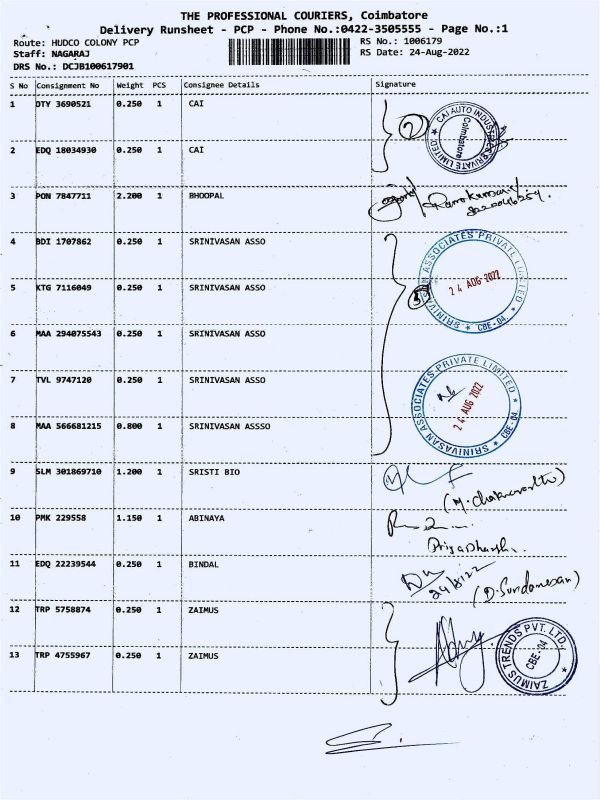 THE PROFESSIONAL COURIERS, Coimbatore
Delivery Runsheet - PCP - Phone No.:0422-3505555 - Page No.:1
Route: HUDCO COLONY PCP
RS No.: 1006179
Staff: NAGARAJ
RS Date: 24-Aug-2022
DRS No.: DCJB100617901
S No Consignment No Weight PCS Consignee Details Signature
1 OTY 3690521 0.250 1 CAI
2
CAI AUTO INDUSTRIES PRIVATE LIMITED ★
Coimbatore
2 EDQ 18034930 0.250 1 CAI
3 PON 7847711 2.200 1 BHOOPAL
4 BDI 1707862 0.250 1 SRINIVASAN ASSO
SRINIVASAN ASSOCIATES PRIVATE LIMITED
★ CBE-04. ★
24 AUG 2022
5 KTG 7116049 0.250 1 SRINIVASAN ASSO
5
6 MAA 294075543 0.250 1 SRINIVASAN ASSO
7 TVL 9747120 0.250 1 SRINIVASAN ASSO
SRINIVASAN ASSOCIATES PRIVATE LIMITED
★ CBE-04. ★
24 AUG 2022
8 MAA 566681215 0.800 1 SRINIVASAN ASSSO
9 SLM 301869710 1.200 1 SRISTI BIO
10 PMK 229558 1.150 1 ABINAYA
11 EDQ 22239544 0.250 1 BINDAL
24/8/22
12 TRP 5758874 0.250 1 ZAIMUS
ZAIMUS TRENDS PVT. LTD.,
CBE-04
★
13 TRP 4755967 0.250 1 ZAIMUS